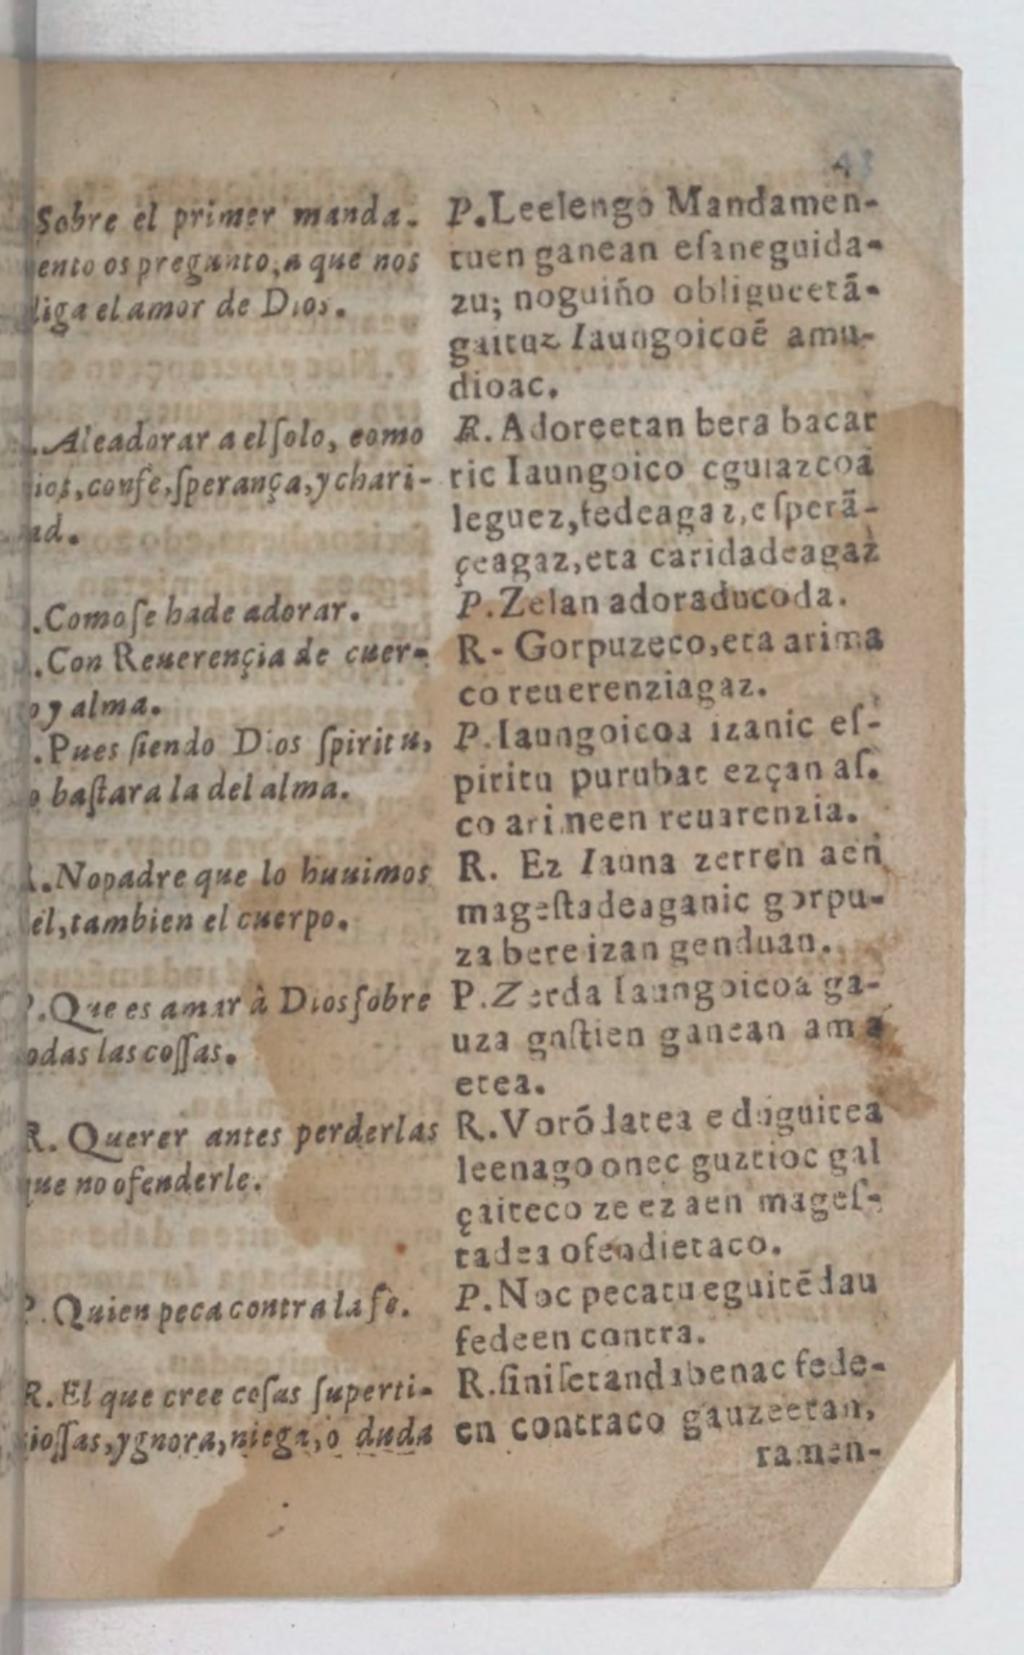 43
Sobre el primer manda-
ento os pregunto, a que nos
liga el amor de Dios.
.Aleadorar a el ſolo, como
ios, con fe, ſperança, y chari-
ad.
.Como ſe hade adorar.
.Con Reuerençia de cuer-
o y alma.
.Pues ſiendo Dios ſpiritu,
o baſtara la del alma.
.No padre que lo huuimos
el, tambien el cuerpo.
P.Que es amar à Dios ſobre
odas las coſſas.
R. Querer antes perderlas
que no ofenderle.
P.Quien peca contra la fe.
R.El que cree coſas ſuperti-
cioſſas, ygnora, niega, o duda
P.Leelengo Mandamen-
tuen ganean eſaneguida-
zu; noguiño obligueetã-
gaituz Iaungoicoẽ amu-
dioac.
R. Adoreetan bera bacar
ric Iaungoico eguiazcoa
leguez, fedeagaz, eſperã-
çeagaz, eta caridadeagaz
P.Zelan adoraducoda.
R- Gorpuzeco, eta arima
co reuerenziagaz.
P.Iaungoicoa izanic eſ-
piritu purubat ezçan aſ.
co arimeen reuarenzia.
R. Ez Iauna zerren aen
mageſtadeaganic gorpu-
za bere izan genduan.
P.Zerda Iaungoicoa ga-
uza guſtien ganean ama
etea.
R.Vorõdatea eduguitea
leenago onec guztioc gal
çaiteco ze ez aen mageſ-
tadea ofendietaco.
P.Noc pecatu eguitẽdau
fedeen contra.
R.ſiniſetandabenac fede-
en contraco gauzeetan,
ramen-